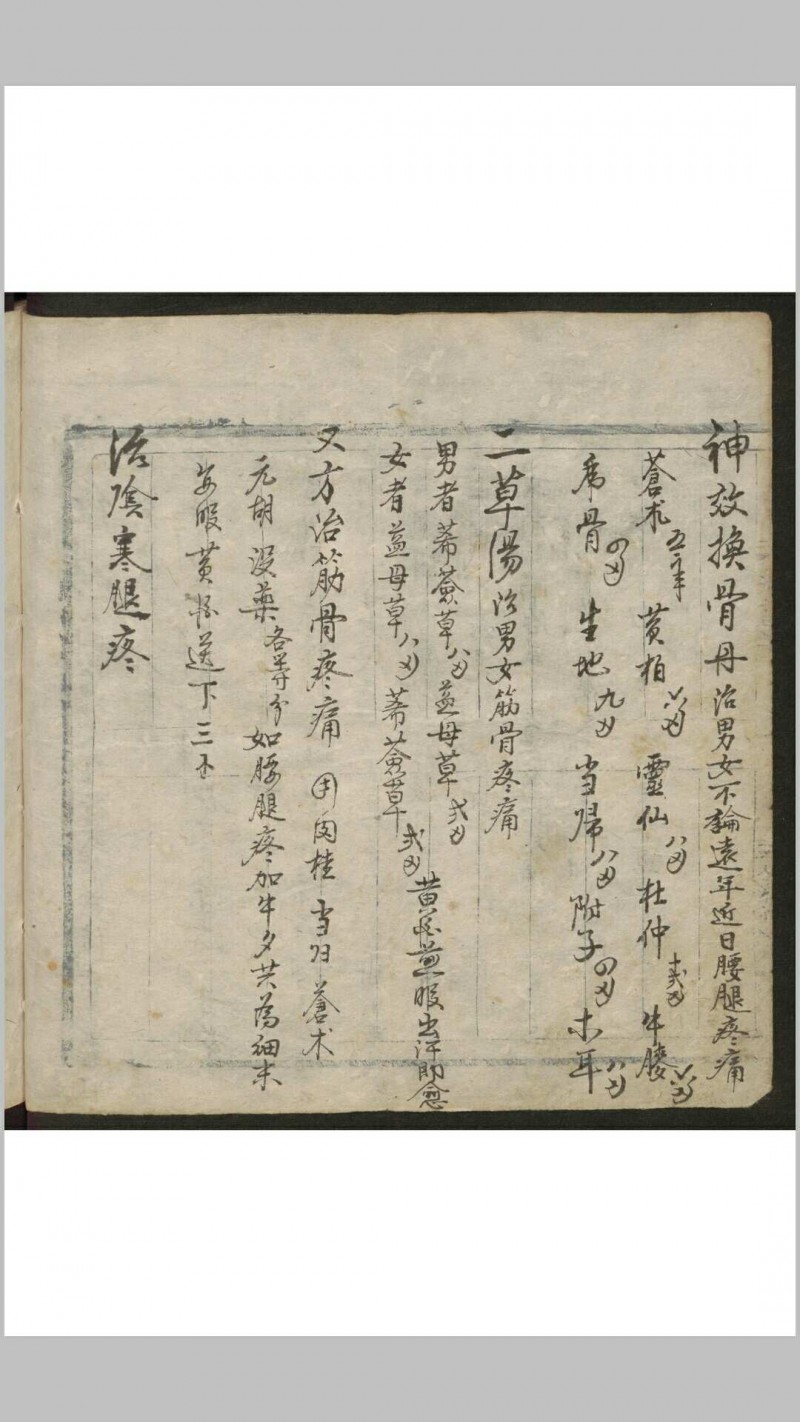 神效換骨丹治男女不論遠年近日腰腿疼痛
蒼朮 黃柏 靈仙 杜仲 牛膝
虎骨 生地九 当歸八 附子四 木耳八
二草湯治男女筋骨疼痛
男者蓄薟草八 益母草弍
女者益母草八 蓄薟草弍 黃酒煎服出汗即愈
又方治筋骨疼痛 用肉桂 当归 蒼术
元胡 没藥各等分 如腰腿疼加牛夕共為細末
每服 黃酒送下三
治陰寒腿疼